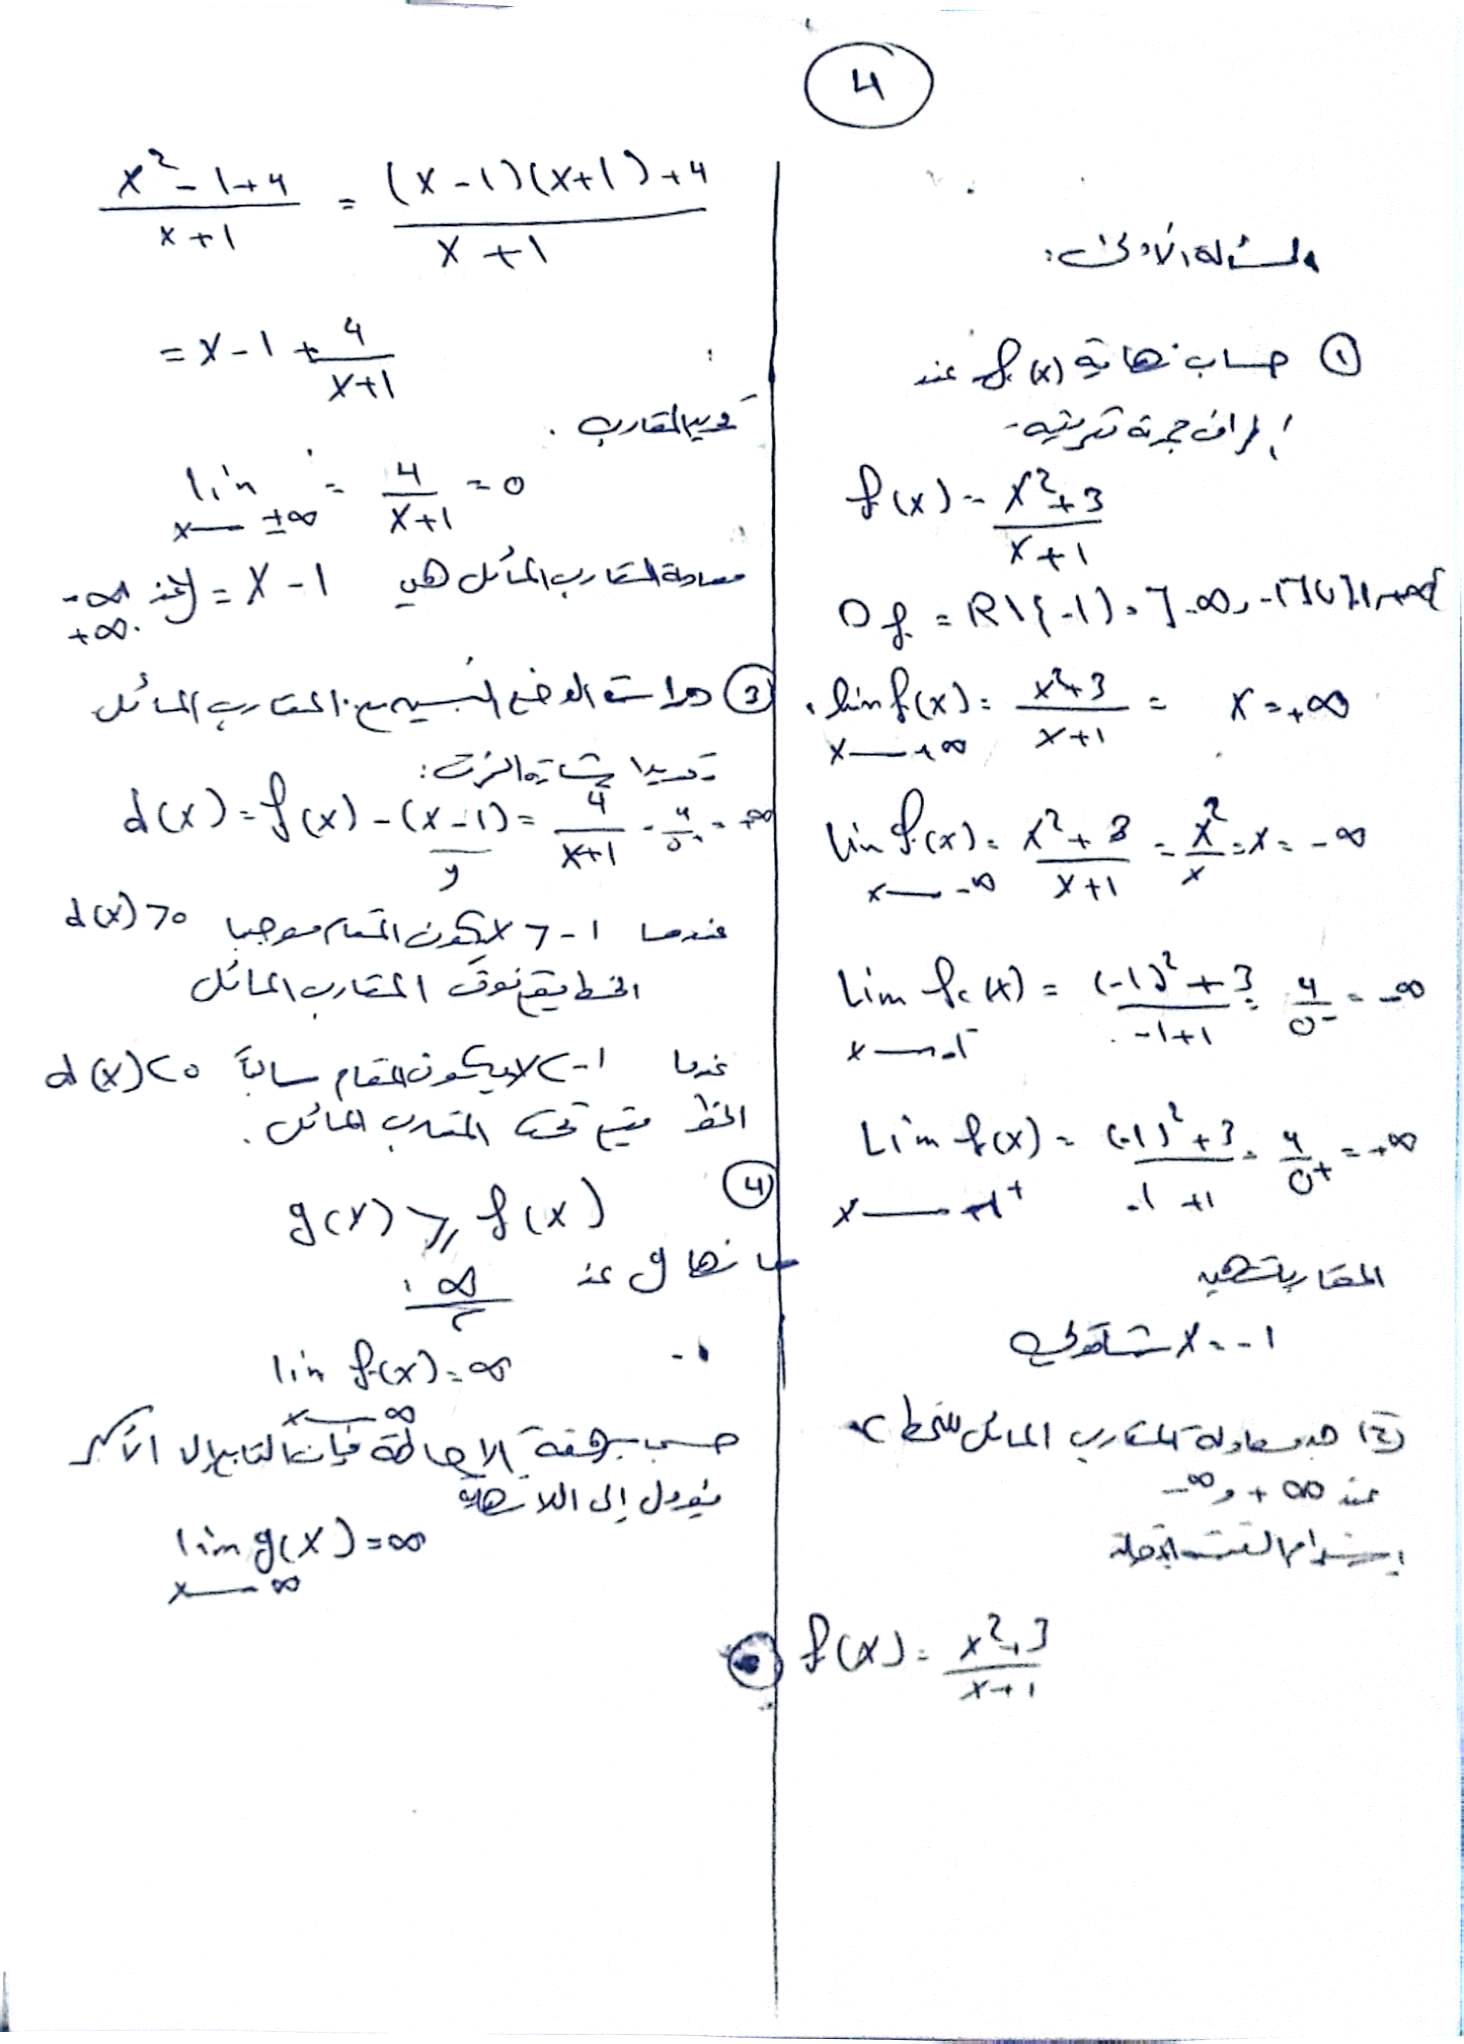 4
المسألة الأولى:
① حساب نهاية f(x) عند
أطراف مجموعة تعريفه.
f(x) = x²+3 / x+1
Df = R\{-1} = ]-∞, -1[ ∪ ]-1, +∞[
lim f(x) = x²+3 / x+1 = x = +∞
x → +∞
lim f(x) = x²+3 / x+1 = x² / x = x = -∞
x → -∞
Lim f(x) = (-1)²+3 / -1+1 = 4 / 0⁻ = -∞
x → -1⁻
Lim f(x) = (-1)²+3 / -1+1 = 4 / 0⁺ = +∞
x → -1⁺
المقاربات هي
x = -1 شاقولي
② معادلة المقارب المائل للخط C
عند +∞ و -∞
f(x) = x²+3 / x+1
x²-1+4 / x+1 = (x-1)(x+1)+4 / x+1
= x-1 + 4 / x+1
المقارب.
lim = 4 / x+1 = 0
x → ±∞
معادلة المقارب المائل هي y = x-1 عند -∞
+∞.
③ دراسة الوضع النسبي مع المقارب المائل
d(x) = f(x) - (x-1) = 4 / x+1 = 4 / 0⁺ = +∞
y
عندما x > -1 يكون المقام موجبا d(x) > 0
الخط يقع فوق المقارب المائل
عندما x < -1 يكون المقام سالباً d(x) < 0
الخط يقع تحت المقارب المائل.
④
g(x) ≥ f(x)
نها g عند
∞
lim f(x) = ∞
x → ∞
حسب مبرهنة الإحاطة فإن التابع الأكبر
يؤول إلى اللانهاية
lim g(x) = ∞
x → ∞